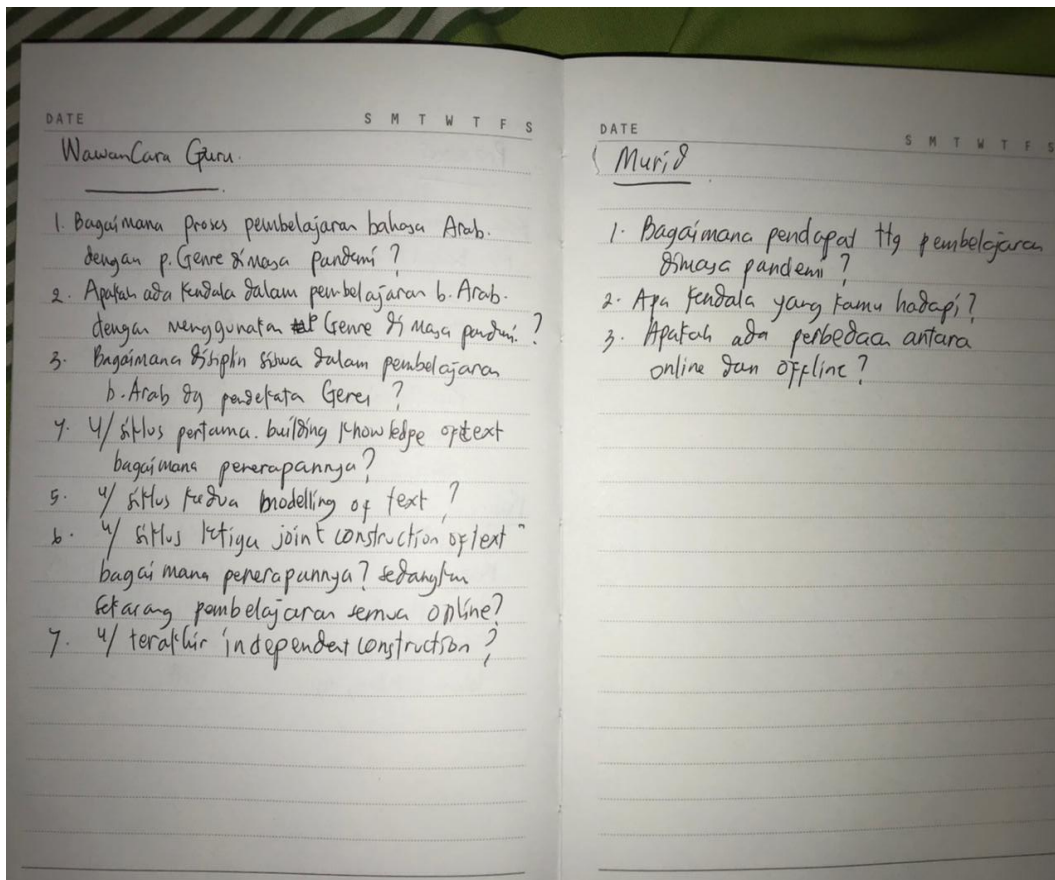 DATE S M T W T F S
WawanCara Guru.
1. Bagaimana proses pembelajaran bahasa Arab.
dengan p. Genre dimasa pandemi ?
2. Apakah ada kendala dalam pembelajaran b. Arab.
dengan menggunakan Genre di masa pandemi. ?
3. Bagaimana disiplin siswa dalam pembelajaran
b. Arab dg pendekata Genre ?
4. u/ siklus pertama. building knowledge of text
bagaimana penerapannya ?
5. u/ siklus kedua modelling of text ?
6. u/ siklus ketiga joint construction of text
bagaimana penerapannya ? sedangkan
sekarang pembelajaran semua online ?
7. u/ terakhir independent construction ?
DATE S M T W T F S
Murid
1. Bagaimana pendapat ttg pembelajaran
dimasa pandemi ?
2. Apa kendala yang kamu hadapi ?
3. Apakah ada perbedaan antara
online dan offline ?